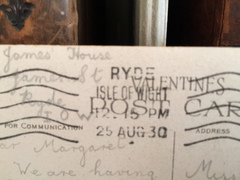 James' House
James St
Ryde
I O W
RYDE
ISLE OF WIGHT
12.15 PM
25 AUG 30
VALENTINES
POST CAR
FOR COMMUNICATION
ADDRESS
ar Margaret
We are having
Miss